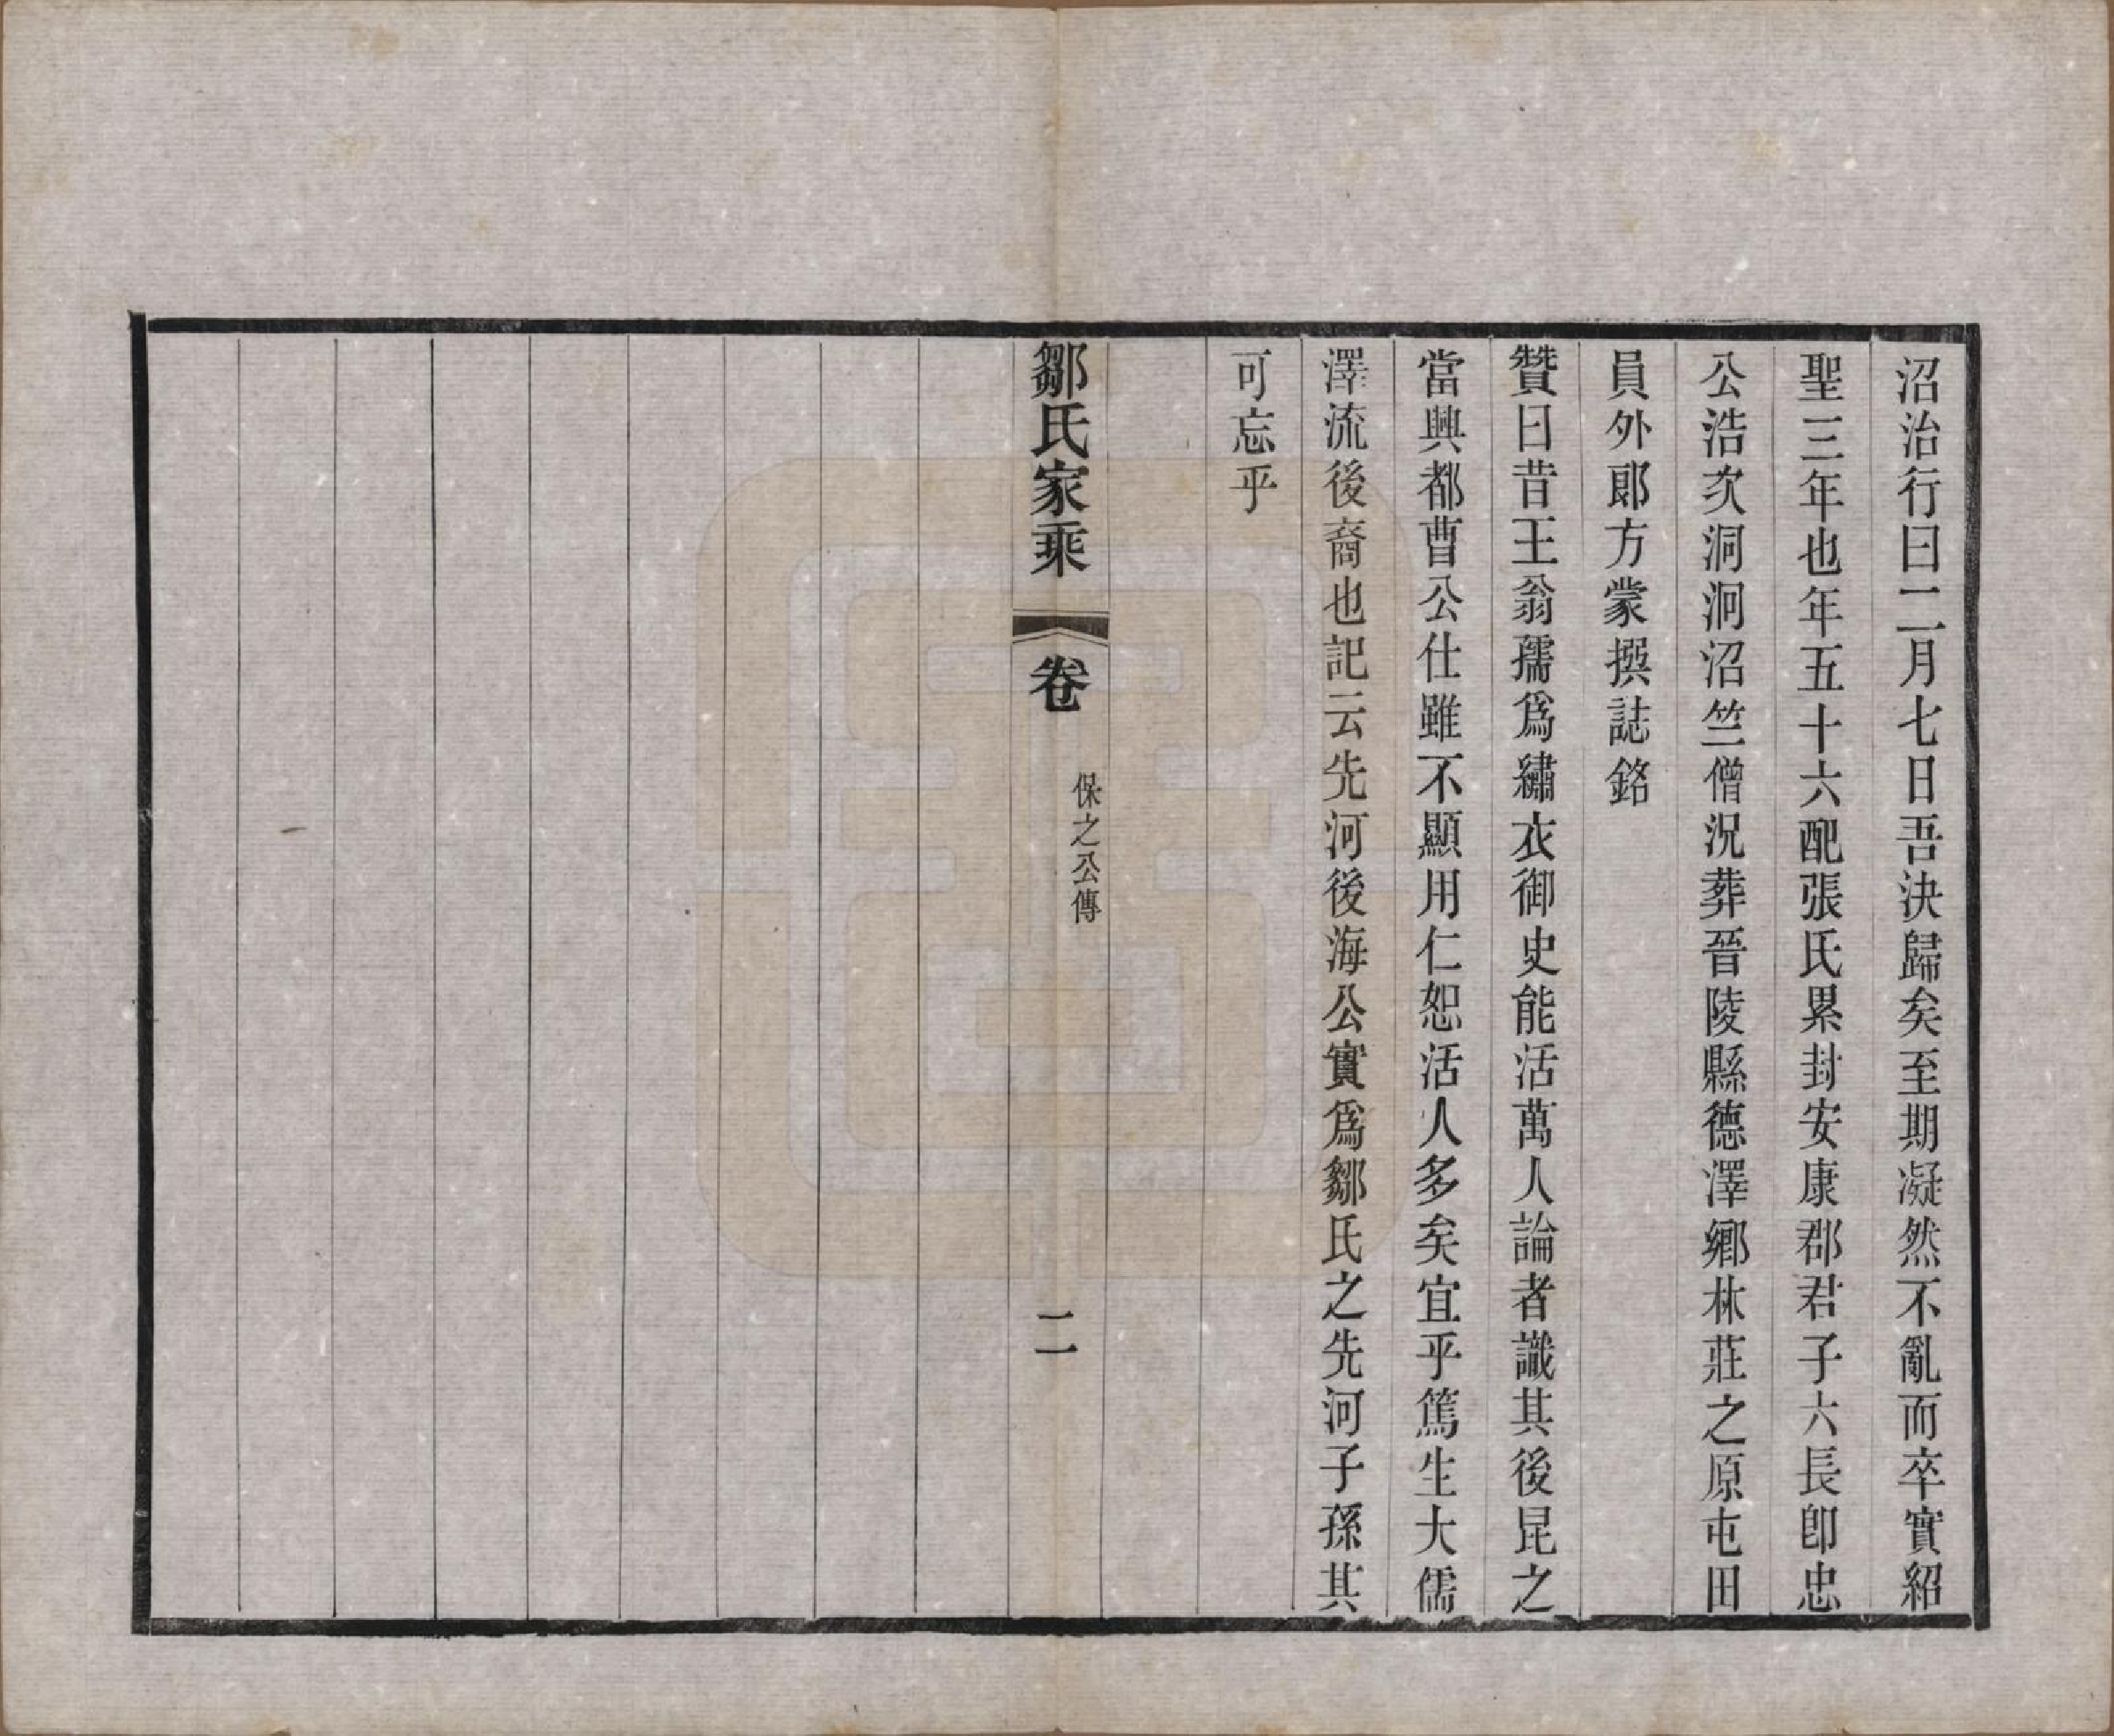 沼治行曰二月七日吾決歸矣至期凝然不亂而卒實紹
聖三年也年五十六配張氏累封安康郡君子六長卽忠
公浩次洞泂沼竺僧況葬晉陵縣德澤鄉林莊之原屯田
員外郎方蒙撰誌銘
贊曰昔王翁孺爲繡衣御史能活萬人論者識其後昆之
當興都曹公仕雖不顯用仁恕活人多矣宜乎篤生大儒
澤流後裔也記云先河後海公實爲鄒氏之先河子孫其
可忘乎
鄒氏家乘
卷
保之公傳
二